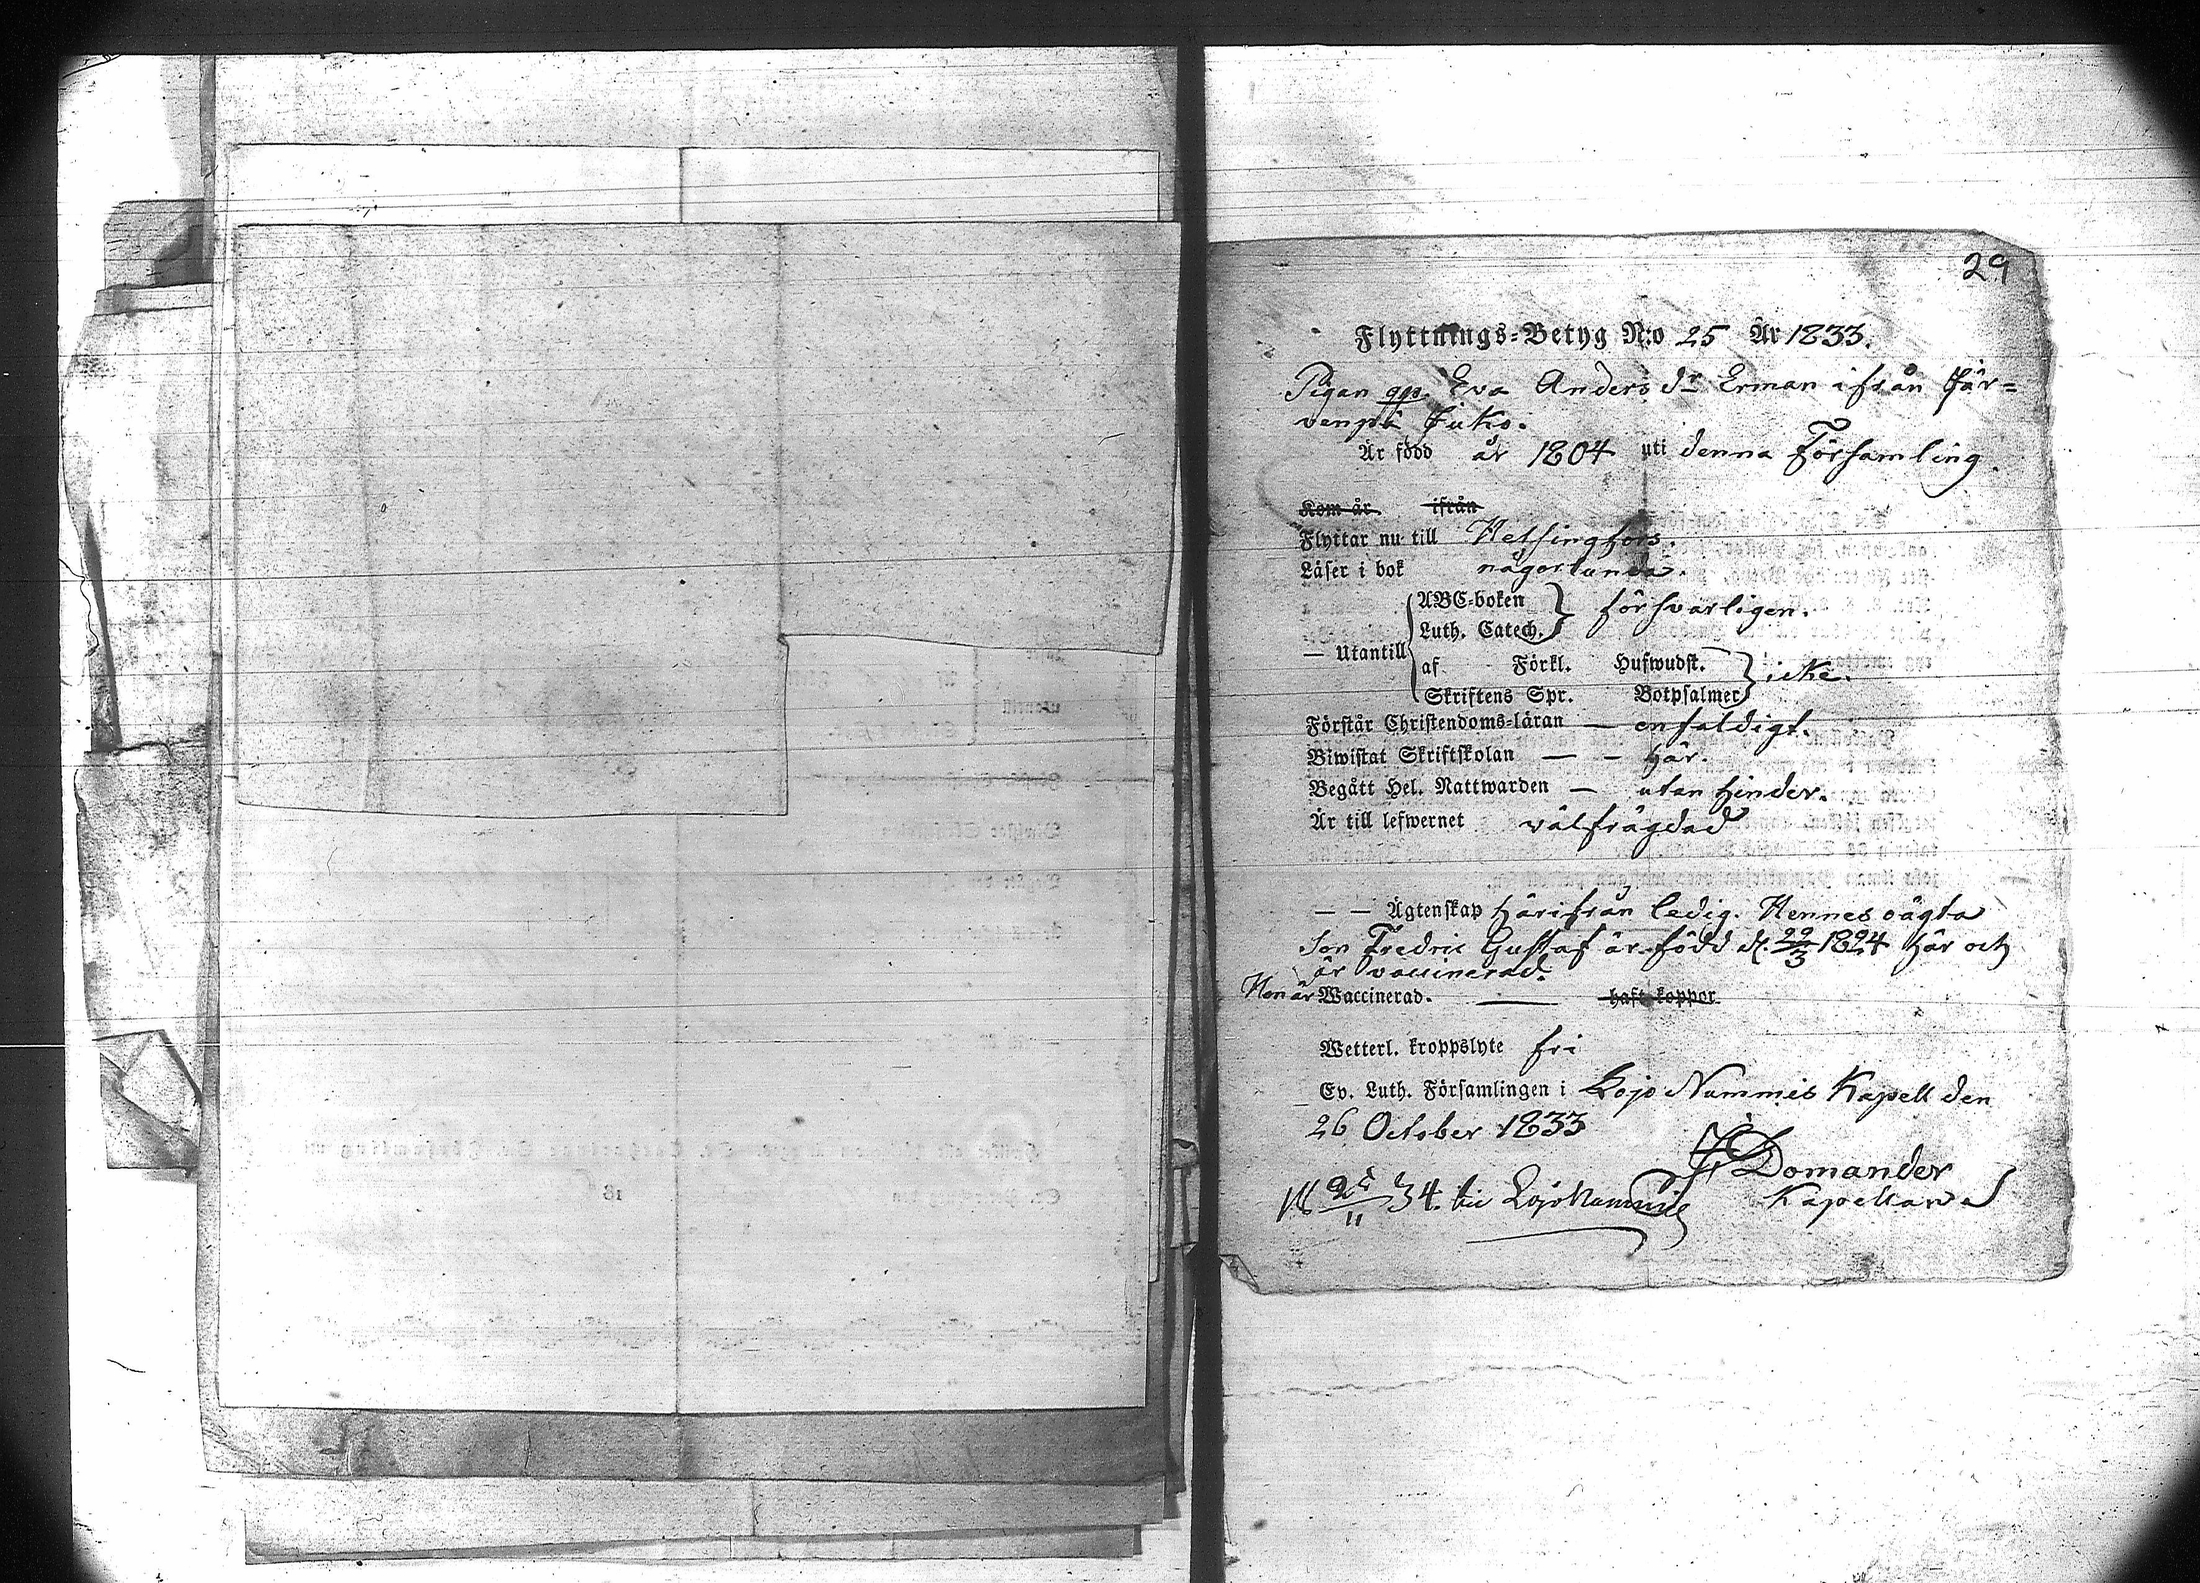 29
Flyttnings-Betyg N:o 25 År 1833.
Pigan qp. Eva Anders dr Erman ifrån Jär=
venpä Juko.
Är född år 1804 uti denna Församling.
Kom år ifrån
Flyttar nu till Helsingfors.
Läser i bok någorlunda.
ABC-boken
försvarligen.
Luth. Catech.
— Utantill
af Förkl. Hufwudst.
icke.
Skriftens Spr. Botpsalmer
Förstår Christendoms-läran — enfaldigt.
Biwistat Skriftskolan — — här.
Begått Hel. Nattwarden — utan hinder.
Är till lefwernet välfrägdad
— — Ägtenskap härifrån ledig. Hennes oägta
Son Fredric Gustaf är född d. 22/3 1824 här och
är vaccinerad.
Hon är Waccinerad. — haft koppor.
Wetterl. kroppslyte fri
Ev. Luth. Församlingen i Lojo Nummis Kapell den
26 October 1833
Domander
Kapellan
34. Lojo Nummis
18